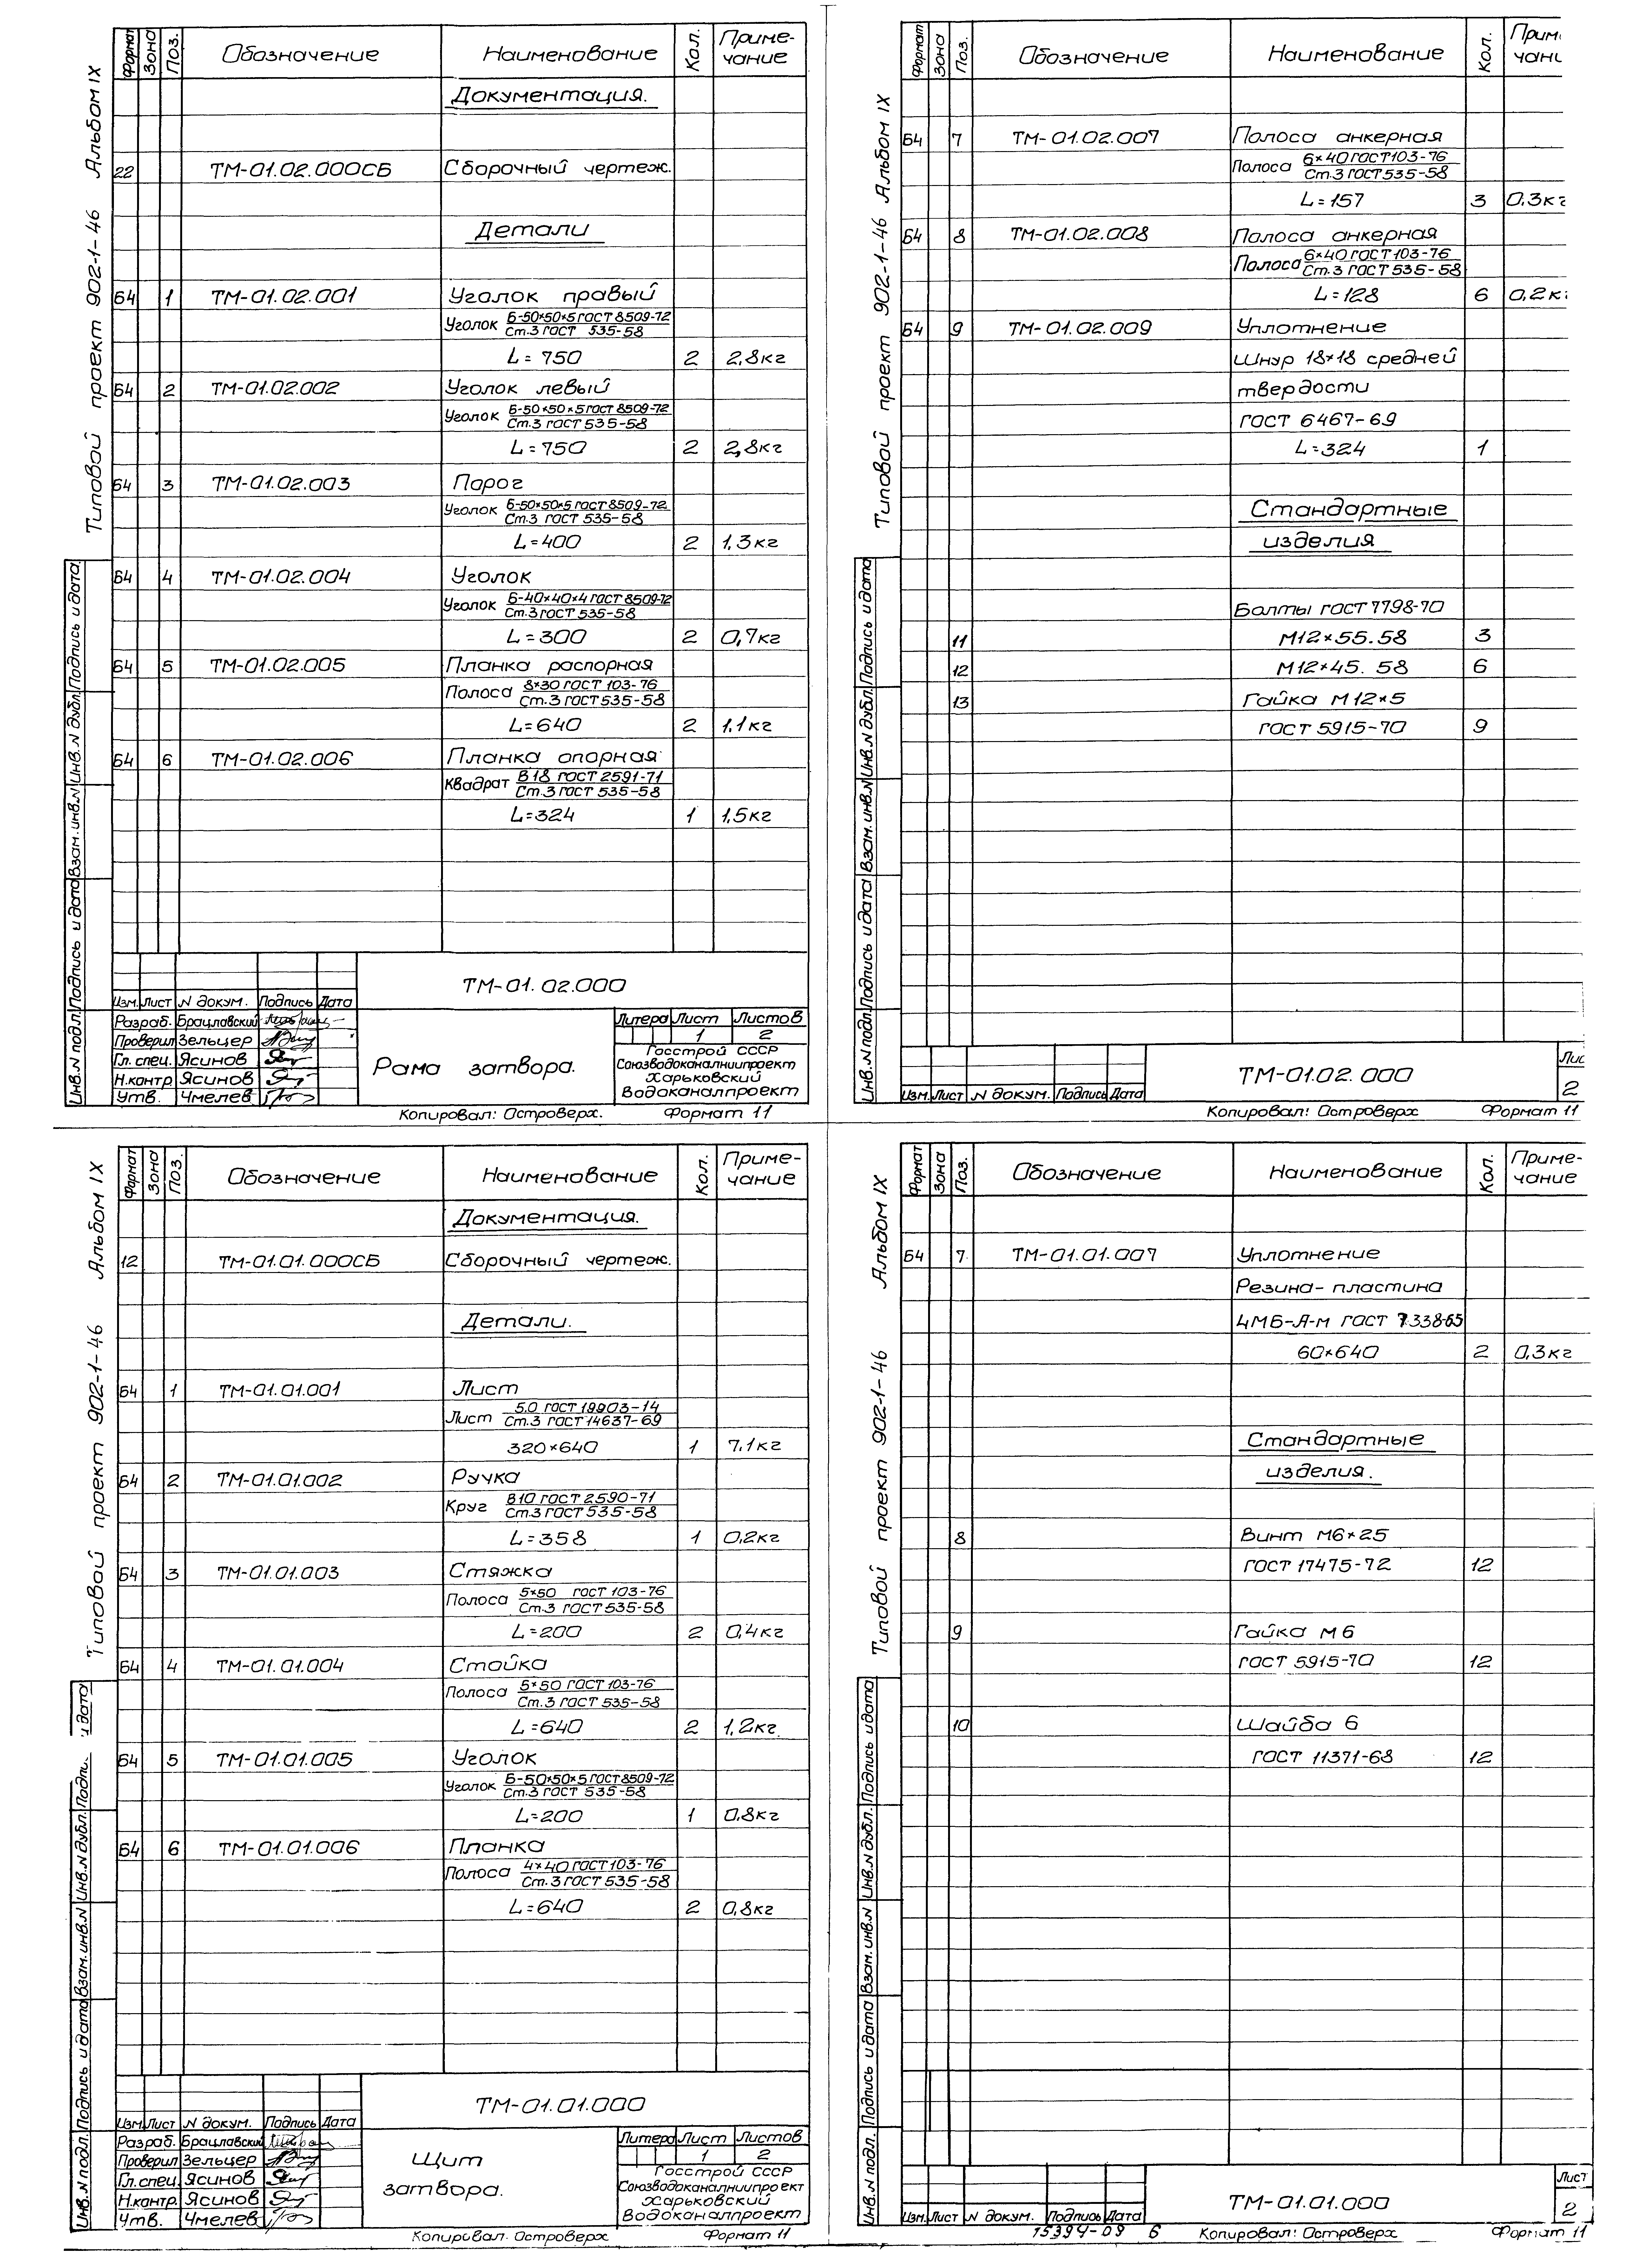 Типовой проект 902-1-46 Альбом IX
Формат Зона Поз. Обозначение Наименование Кол. Приме-
чание
Документация.
22 ТМ-01.02.000СБ Сборочный чертеж.
Детали
Б4 1 ТМ-01.02.001 Уголок правый
Уголок Б-50×50×5 ГОСТ 8509-72
Ст.3 ГОСТ 535-58
L=750 2 2,8кг
Б4 2 ТМ-01.02.002 Уголок левый
Уголок Б-50×50×5 ГОСТ 8509-72
Ст.3 ГОСТ 535-58
L=750 2 2,8кг
Б4 3 ТМ-01.02.003 Порог
Уголок Б-50×50×5 ГОСТ 8509-72
Ст.3 ГОСТ 535-58
L=400 2 1,3кг
Б4 4 ТМ-01.02.004 Уголок
Уголок Б-40×40×4 ГОСТ 8509-72
Ст.3 ГОСТ 535-58
L=300 2 0,7кг
Б4 5 ТМ-01.02.005 Планка распорная
Полоса 8×30 ГОСТ 103-76
Ст.3 ГОСТ 535-58
L=640 2 1,1кг
Б4 6 ТМ-01.02.006 Планка опорная
Квадрат В18 ГОСТ 2591-71
Ст.3 ГОСТ 535-58
L=324 1 1,5кг
Инв.N подл. Подпись и дата Взам.инв.N Инв.N дубл. Подпись и дата
ТМ-01.02.000
Изм. Лист N докум. Подпись Дата
Разраб. Брацлавский
Проверил Зельцер
Гл. спец. Ясинов
Н.контр Ясинов
Утв. Чмелев
Рама затвора.
Литера Лист Листов
1 2
Госстрой СССР
Союзводоканалниипроект
Харьковский
Водоканалпроект
Копировал: Островерх. Формат 11
Типовой проект 902-1-46 Альбом IX
Формат Зона Поз. Обозначение Наименование Кол. Прим
чани
Б4 7 ТМ-01.02.007 Полоса анкерная
Полоса 6×40 ГОСТ 103-76
Ст.3 ГОСТ 535-58
L=157 3 0,3кг
Б4 8 ТМ-01.02.008 Полоса анкерная
Полоса 6×40 ГОСТ 103-76
Ст.3 ГОСТ 535-58
L=128 6 0,2к
Б4 9 ТМ-01.02.009 Уплотнение
Шнур 18×18 средней
твердости
ГОСТ 6467-69
L=324 1
Стандартные
изделия
Болты ГОСТ 7798-70
11 М12×55.58 3
12 М12×45.58 6
13 Гайка М12×5
ГОСТ 5915-70 9
Инв.N подл. Подпись и дата Взам.инв.N Инв.N дубл. Подпись и дата
Изм. Лист N докум. Подпись Дата
ТМ-01.02.000
Лис
2
Копировал: Островерх Формат 11
Типовой проект 902-1-46 Альбом IX
Формат Зона Поз. Обозначение Наименование Кол. Приме-
чание
Документация.
12 ТМ-01.01.000СБ Сборочный чертеж.
Детали.
Б4 1 ТМ-01.01.001 Лист
Лист 5.0 ГОСТ 19903-14
Ст.3 ГОСТ 14637-69
320×640 1 7,1кг
Б4 2 ТМ-01.01.002 Ручка
Круг В10 ГОСТ 2590-71
Ст.3 ГОСТ 535-58
L=358 1 0,2кг
Б4 3 ТМ-01.01.003 Стяжка
Полоса 5×50 ГОСТ 103-76
Ст.3 ГОСТ 535-58
L=200 2 0,4кг
Б4 4 ТМ-01.01.004 Стойка
Полоса 5×50 ГОСТ 103-76
Ст.3 ГОСТ 535-58
L=640 2 1,2кг
Б4 5 ТМ-01.01.005 Уголок
Уголок Б-50×50×5 ГОСТ 8509-72
Ст.3 ГОСТ 535-58
L=200 1 0,8кг
Б4 6 ТМ-01.01.006 Планка
Полоса 4×40 ГОСТ 103-76
Ст.3 ГОСТ 535-58
L=640 2 0,8кг
Инв.N подл. Подпись и дата Взам.инв.N Инв.N дубл. Подпи. и дата
ТМ-01.01.000
Изм. Лист N докум. Подпись Дата
Разраб. Брацлавский
Проверил Зельцер
Гл.спец. Ясинов
Н.контр. Ясинов
Утв. Чмелев
Щит
затвора.
Литера Лист Листов
1 2
Госстрой СССР
Союзводоканалниипроект
Харьковский
Водоканалпроект
Копировал. Островерх Формат 11
Типовой проект 902-1-46 Альбом IX
Формат Зона Поз. Обозначение Наименование Кол. Приме-
чание
Б4 7 ТМ-01.01.007 Уплотнение
Резина-пластина
4МБ-А-м ГОСТ 7338-65
60×640 2 0,3кг
Стандартные
изделия.
8 Винт М6×25
ГОСТ 17475-72 12
9 Гайка М6
ГОСТ 5915-70 12
10 Шайба 6
ГОСТ 11371-68 12
Инв.N подл. Подпись и дата Взам.инв.N Инв.N дубл. Подпись и дата
Изм. Лист N докум. Подпись Дата
ТМ-01.01.000
Лист
2
15394-09 6 Копировал: Островерх Формат 11